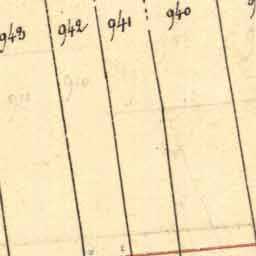 943 942 941 940